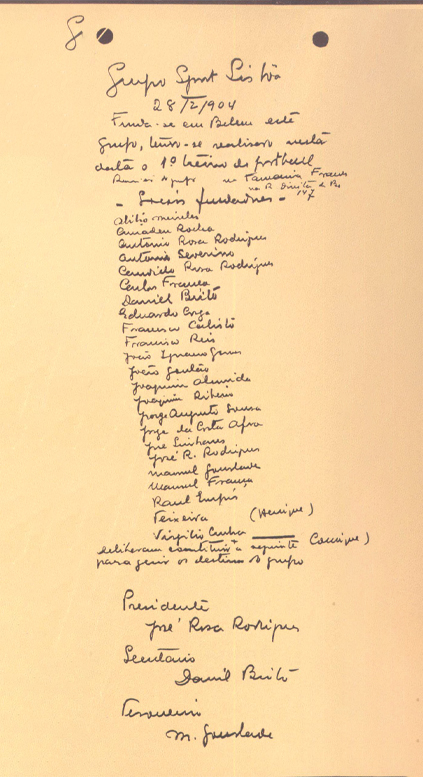 Grupo Sport Lisbôa
28/2/904
Funda-se em Belem este
grupo, tendo-se realisado nesta
data o 1º treino de football
Reuniu o grupo na Farmacia Franco
na R. Direita de 147
- Socios fundadores -
Abilio Meireles
Amadeu Rocha
Antonio Rosa Rodrigues
Antonio Severino
Candido Rosa Rodrigues
Carlos França
Daniel Brito
Eduardo Corga
Francisco Calisto
Francisco Reis
João Ignacio Gomes
João Goulão
Joaquim Almeida
Joaquim Ribeiro
Jorge Augusto Sousa
Jorge da Costa Afra
José Linhares
José R. Rodrigues
Manuel Gourlade
Manuel França
Raul Empis
Teixeira (Henrique)
Virgilio Cunha
deliberam constituir a seguinte
para gerir os destinos do grupo
Presidente
José Rosa Rodrigues
Secretario
Daniel Brito
Tesoureiro
M. Gourlade